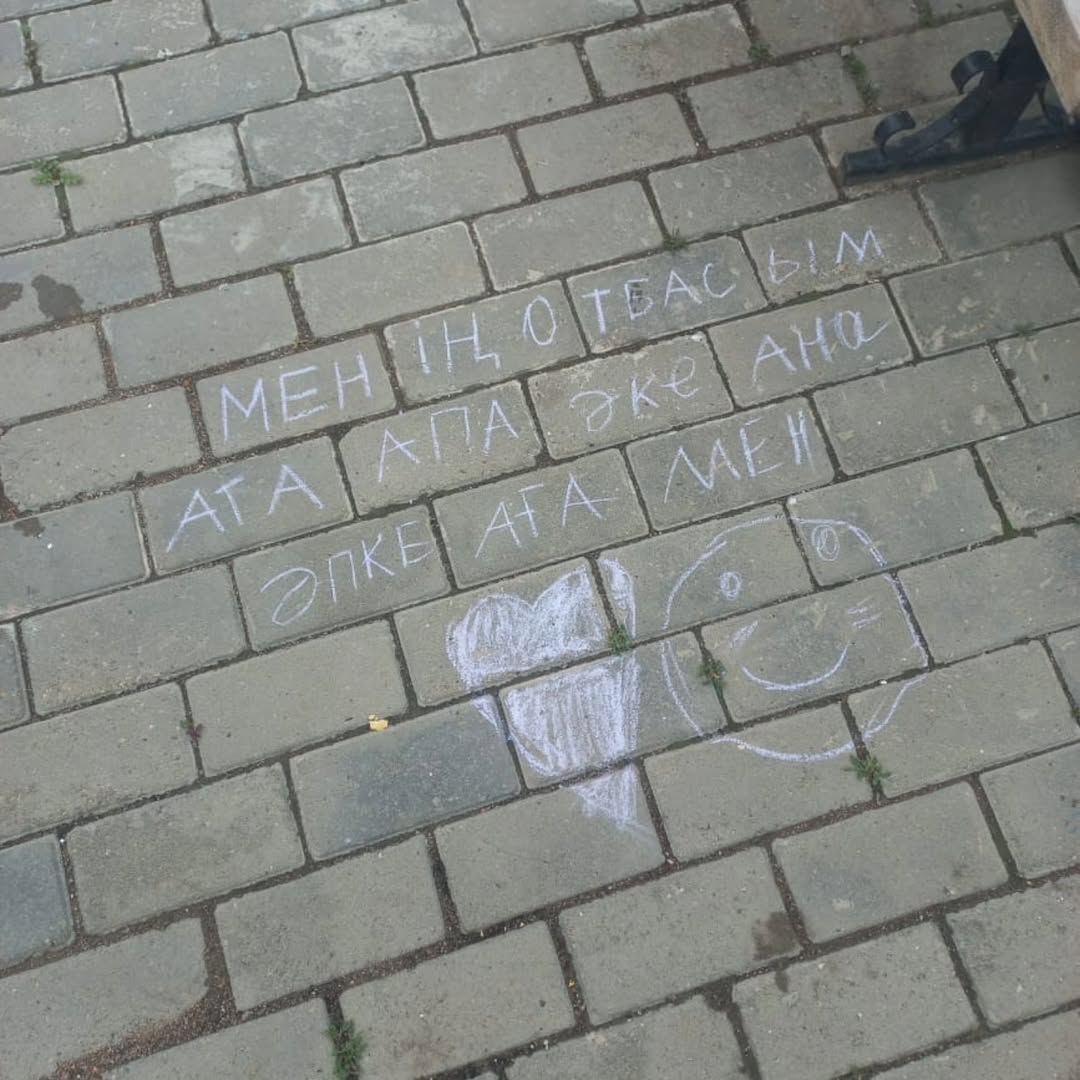 МЕНІҢ ОТБАСЫМ
АТА АПА ӘКЕ АНА
ӘПКЕ АҒА МЕН